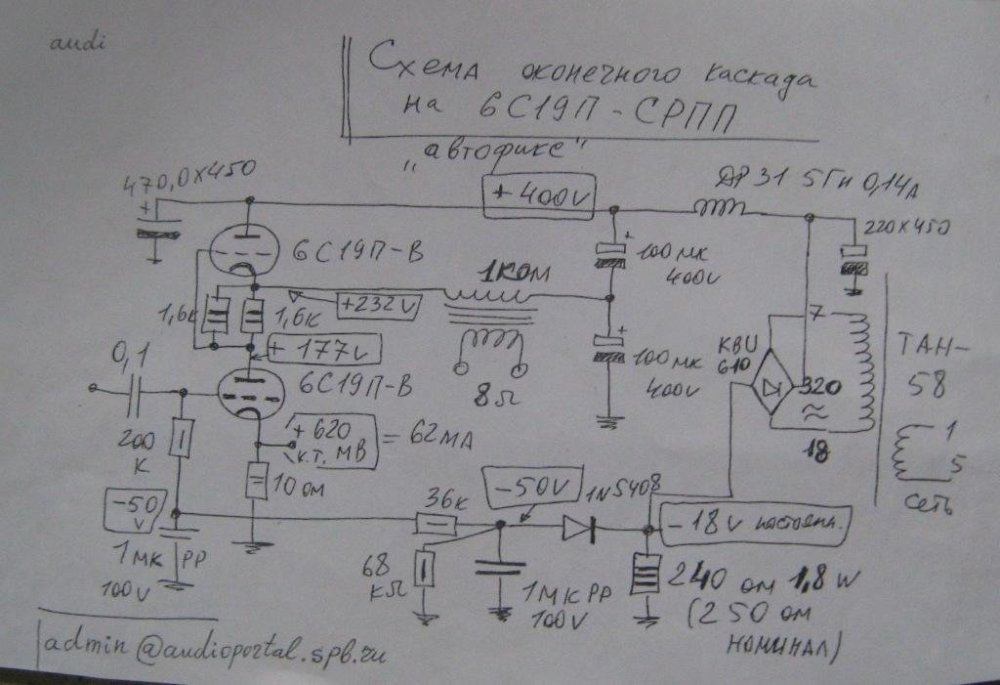 audi
Схема оконечного каскада
на 6С19П-СРПП
„автофикс"
470,0x450
+
+400V
ДР31 5Гн 0,14А
220x450
6С19П-В
1КОМ
+
100мк
400V
1,6к
1,6к
+232V
+177V
0,1
6С19П-В
8Ω
+
100мк
400V
KBU
610
7
320
≈
18
ТАН-
58
1
5
сеть
200
К
+620
К.Т. МВ
=62МА
10ом
-50
V
36к
-50V
1N5408
-18V постоянн.
1МК РР
100V
68
КΩ
1МК РР
100V
240 ом 1,8W
(250 ом
номинал)
admin@audioportal.spb.ru